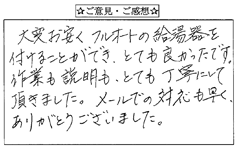 ☆ご意見・ご感想☆
大変お安くフルオートの給湯器を
付けることができ、とても良かったです。
作業も説明も、とても丁寧にして
頂きました。メールでの対応も早く、
ありがとうございました。